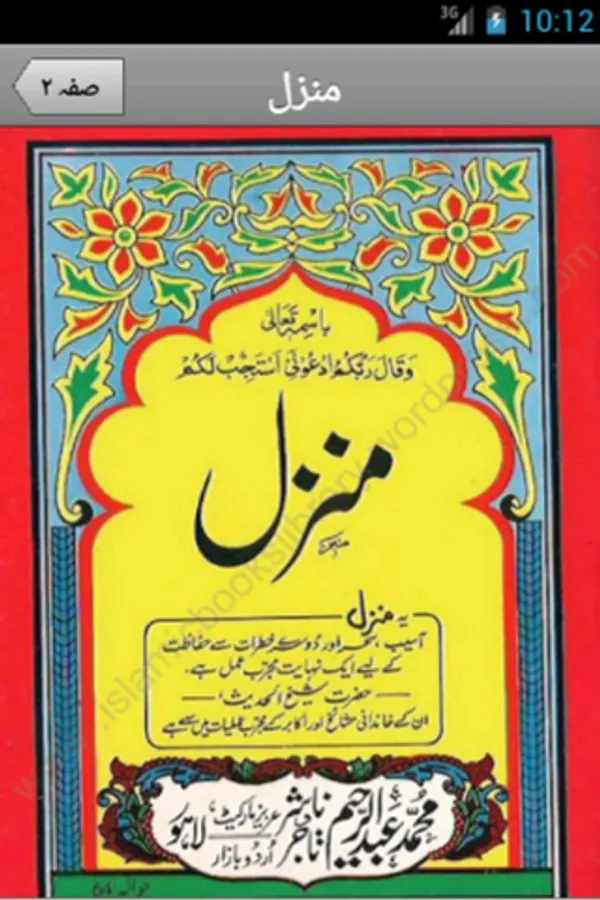 3G 10:12
صفہ ۲
منزل
باسمہٖ تعالیٰ
وَقَالَ رَبُّكُمُ ادْعُوْنِيْ اَسْتَجِبْ لَكُمْ
منزل
یہ منزل
آسیب، سحر اور دوسرے خطرات سے حفاظت
کے لیے ایک نہایت مجرّب عمل ہے۔
حضرت شیخ الحدیثؒ
ان کے خاندانی مشائخ اور اکابر کے مجرّب عملیات میں سے ہے
محمد عبدالرحیم ناشر تاجر عزیز مارکیٹ، اُردو بازار لاہور
حوالہ 64
www.islamicbookslibrary.wordpress.com